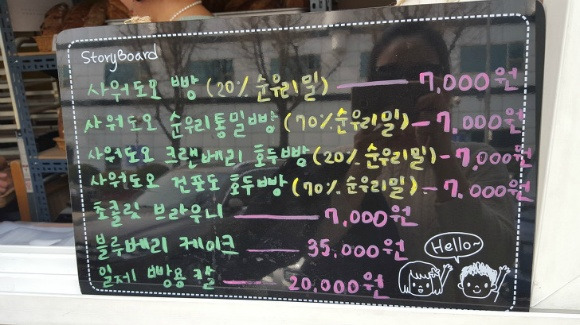 StoryBoard
사워도오 빵 (20% 순우리밀) — 7,000원
사워도오 순우리통밀빵 (70% 순우리밀) – 7,000원
사워도오 크랜베리 호두빵 (20% 순우리밀) - 7,000원
사워도오 건포도 호두빵 (70% 순우리밀) – 7,000원
초콜릿 브라우니 — 7,000원
블루베리 케이크 — 35,000원
일제 빵용 칼 — 20,000원
Hello~